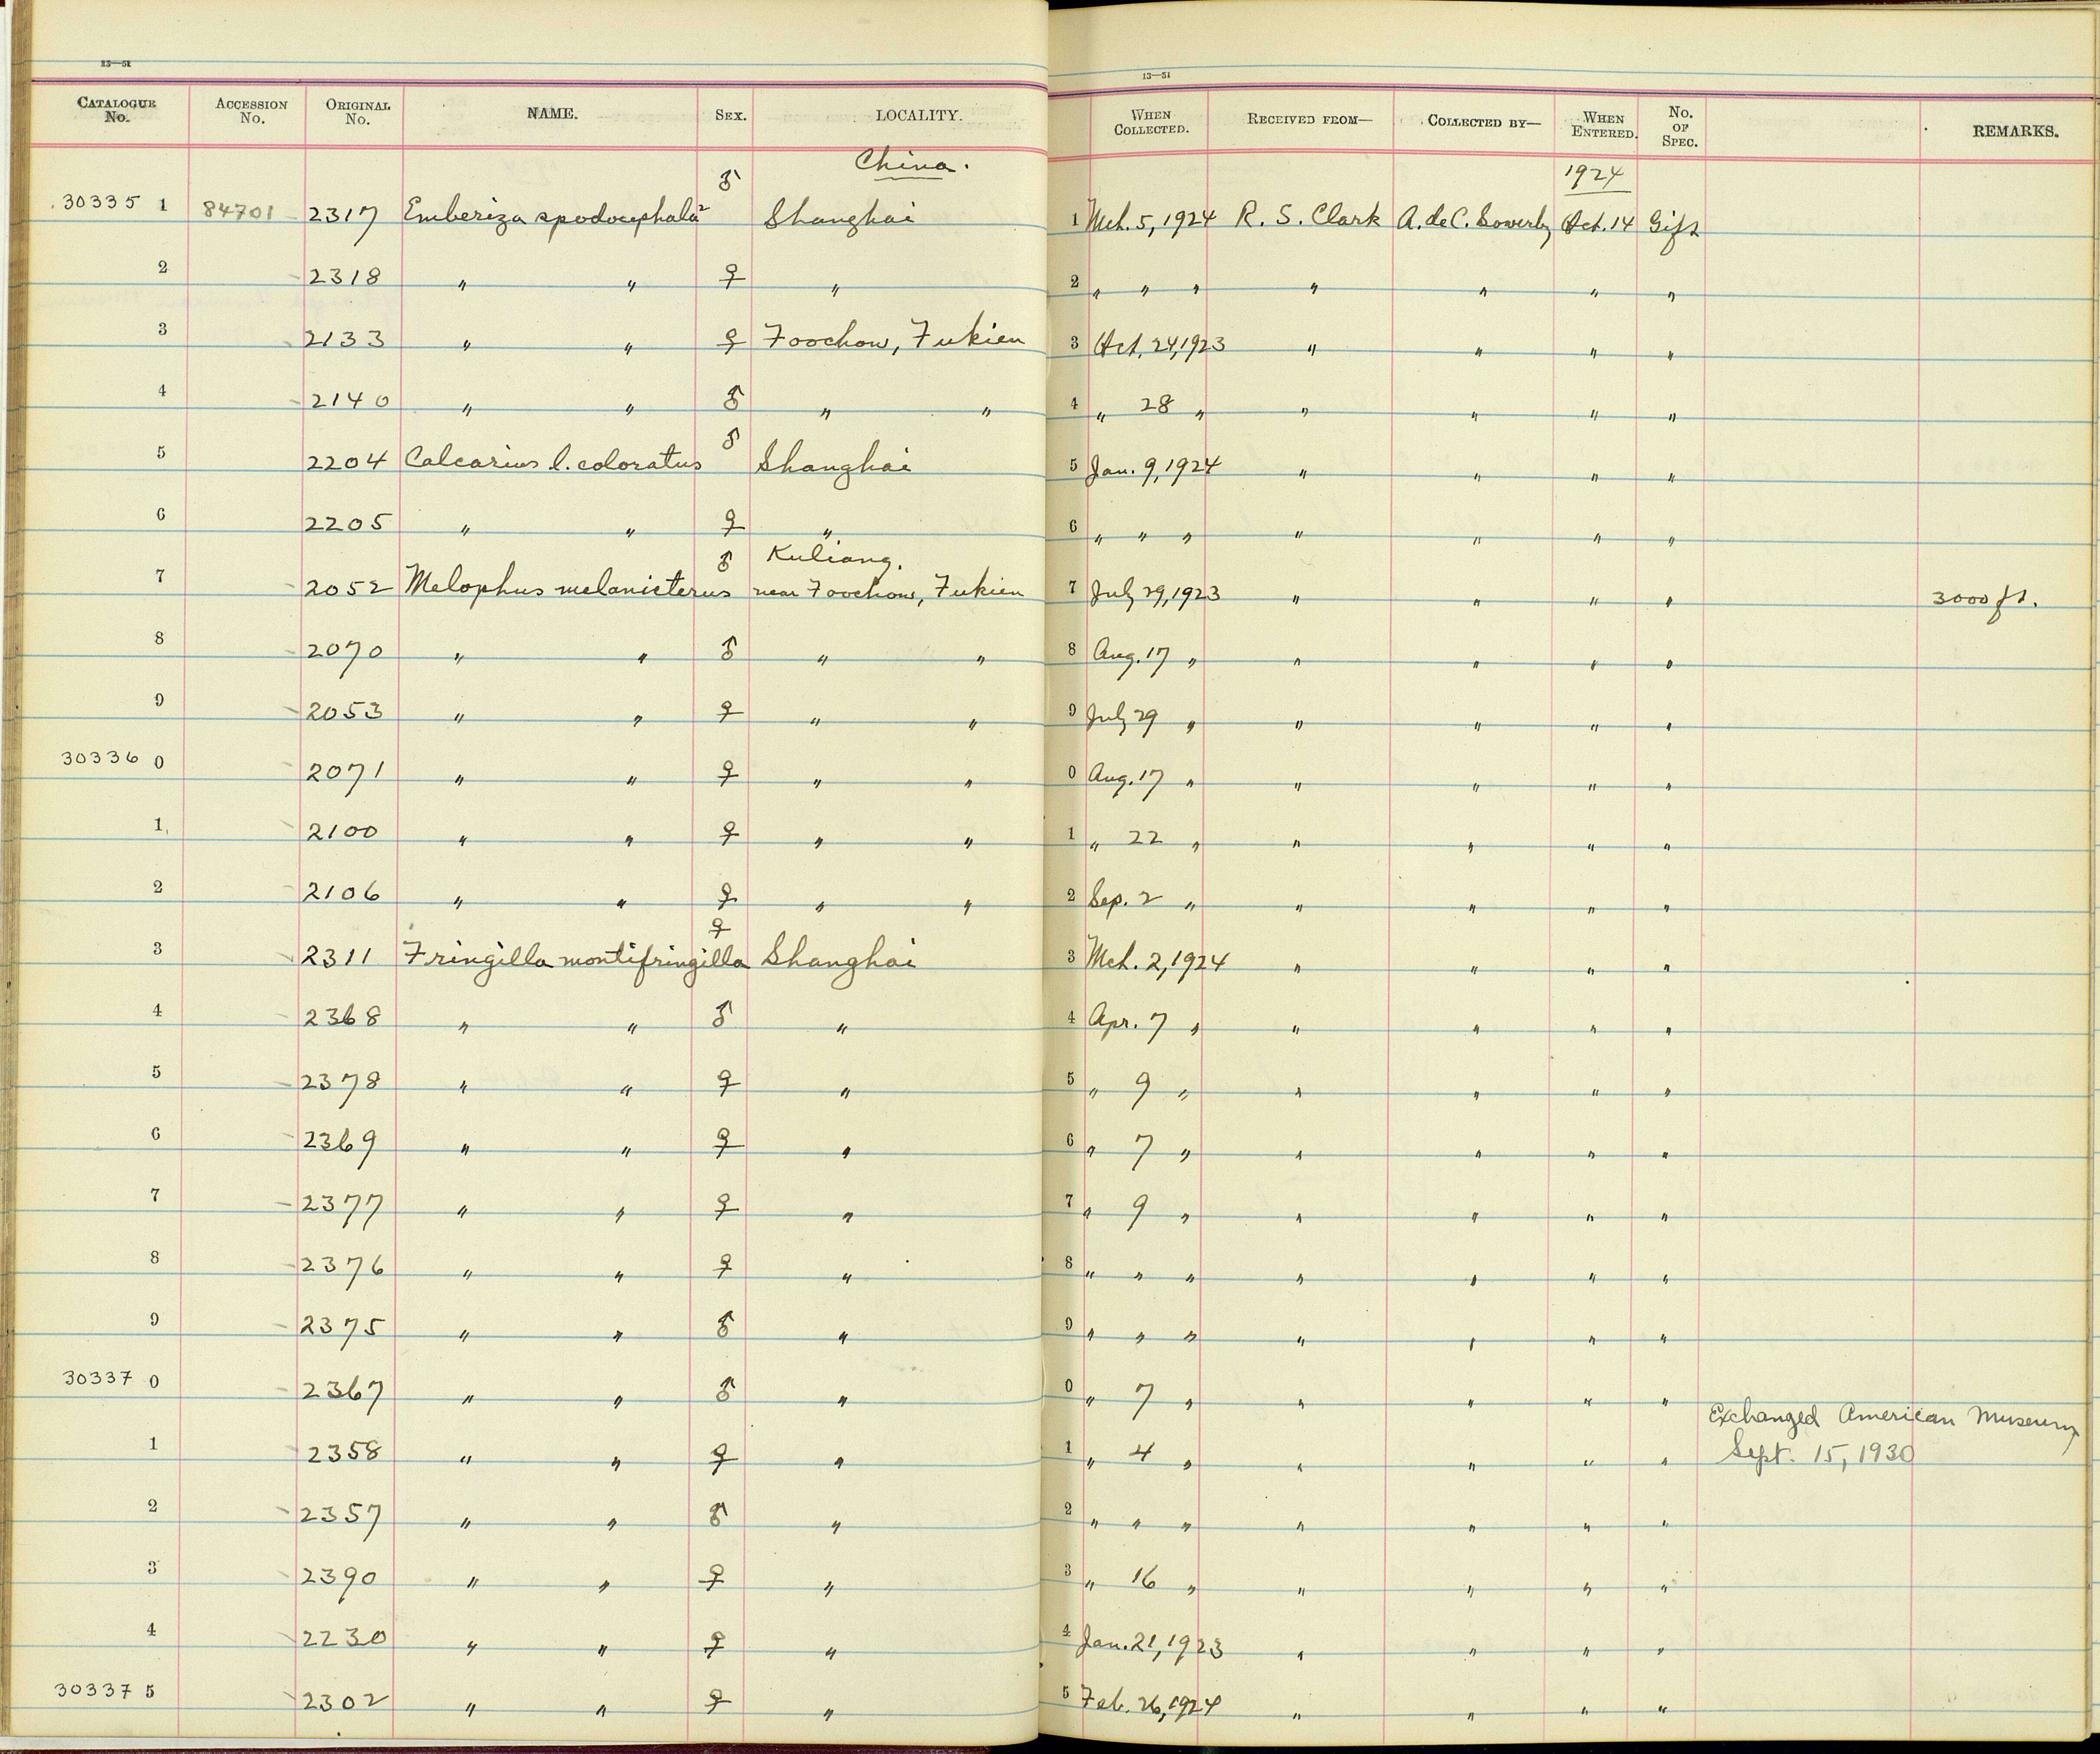 13—51 13—51
CATALOGUE No. ACCESSION No. ORIGINAL No. NAME. SEX. LOCALITY. WHEN COLLECTED. RECEIVED FROM— COLLECTED BY— WHEN ENTERED. No. OF SPEC. REMARKS.
China. 1924
30335 1 84701 2317 Emberiza spodocephala ♂ Shanghai 1 Mch. 5, 1924 R. S. Clark A. de C. Sowerby Oct. 14 Gift
2 2318 " " ♀ " 2 " " " " " " "
3 2133 " " ♀ Foochow, Fukien 3 Oct. 24, 1923 " " " "
4 2140 " " ♂ " " 4 " 28 " " " " "
5 2204 Calcarius l. coloratus ♂ Shanghai 5 Jan. 9, 1924 " " " "
6 2205 " " ♀ " 6 " " " " " " "
Kuliang.
7 2052 Melophus melanicterus ♂ near Foochow, Fukien 7 July 29, 1923 " " " " 3000 ft.
8 2070 " " ♂ " " 8 Aug. 17 " " " " "
9 2053 " " ♀ " " 9 July 29 " " " " "
30336 0 2071 " " ♀ " " 0 Aug. 17 " " " " "
1 2100 " " ♀ " " 1 " 22 " " " " "
2 2106 " " ♀ " " 2 Sep. 2 " " " " "
3 2311 Fringilla montifringilla ♀ Shanghai 3 Mch. 2, 1924 " " " "
4 2368 " " ♂ " 4 Apr. 7 " " " " "
5 2378 " " ♀ " 5 " 9 " " " " "
6 2369 " " ♀ " 6 " 7 " " " " "
7 2377 " " ♀ " 7 " 9 " " " " "
8 2376 " " ♀ " 8 " " " " " " "
9 2375 " " ♂ " 9 " " " " " " "
30337 0 2367 " " ♂ " 0 " 7 " " " " "
Exchanged American Museum
1 2358 " " ♀ " 1 " 4 " " " " " Sept. 15, 1930
2 2357 " " ♂ " 2 " " " " " " "
3 2390 " " ♀ " 3 " 16 " " " " "
4 2230 " " ♀ " 4 Jan. 21, 1923 " " " "
30337 5 2302 " " ♀ " 5 Feb. 26, 1924 " " " "